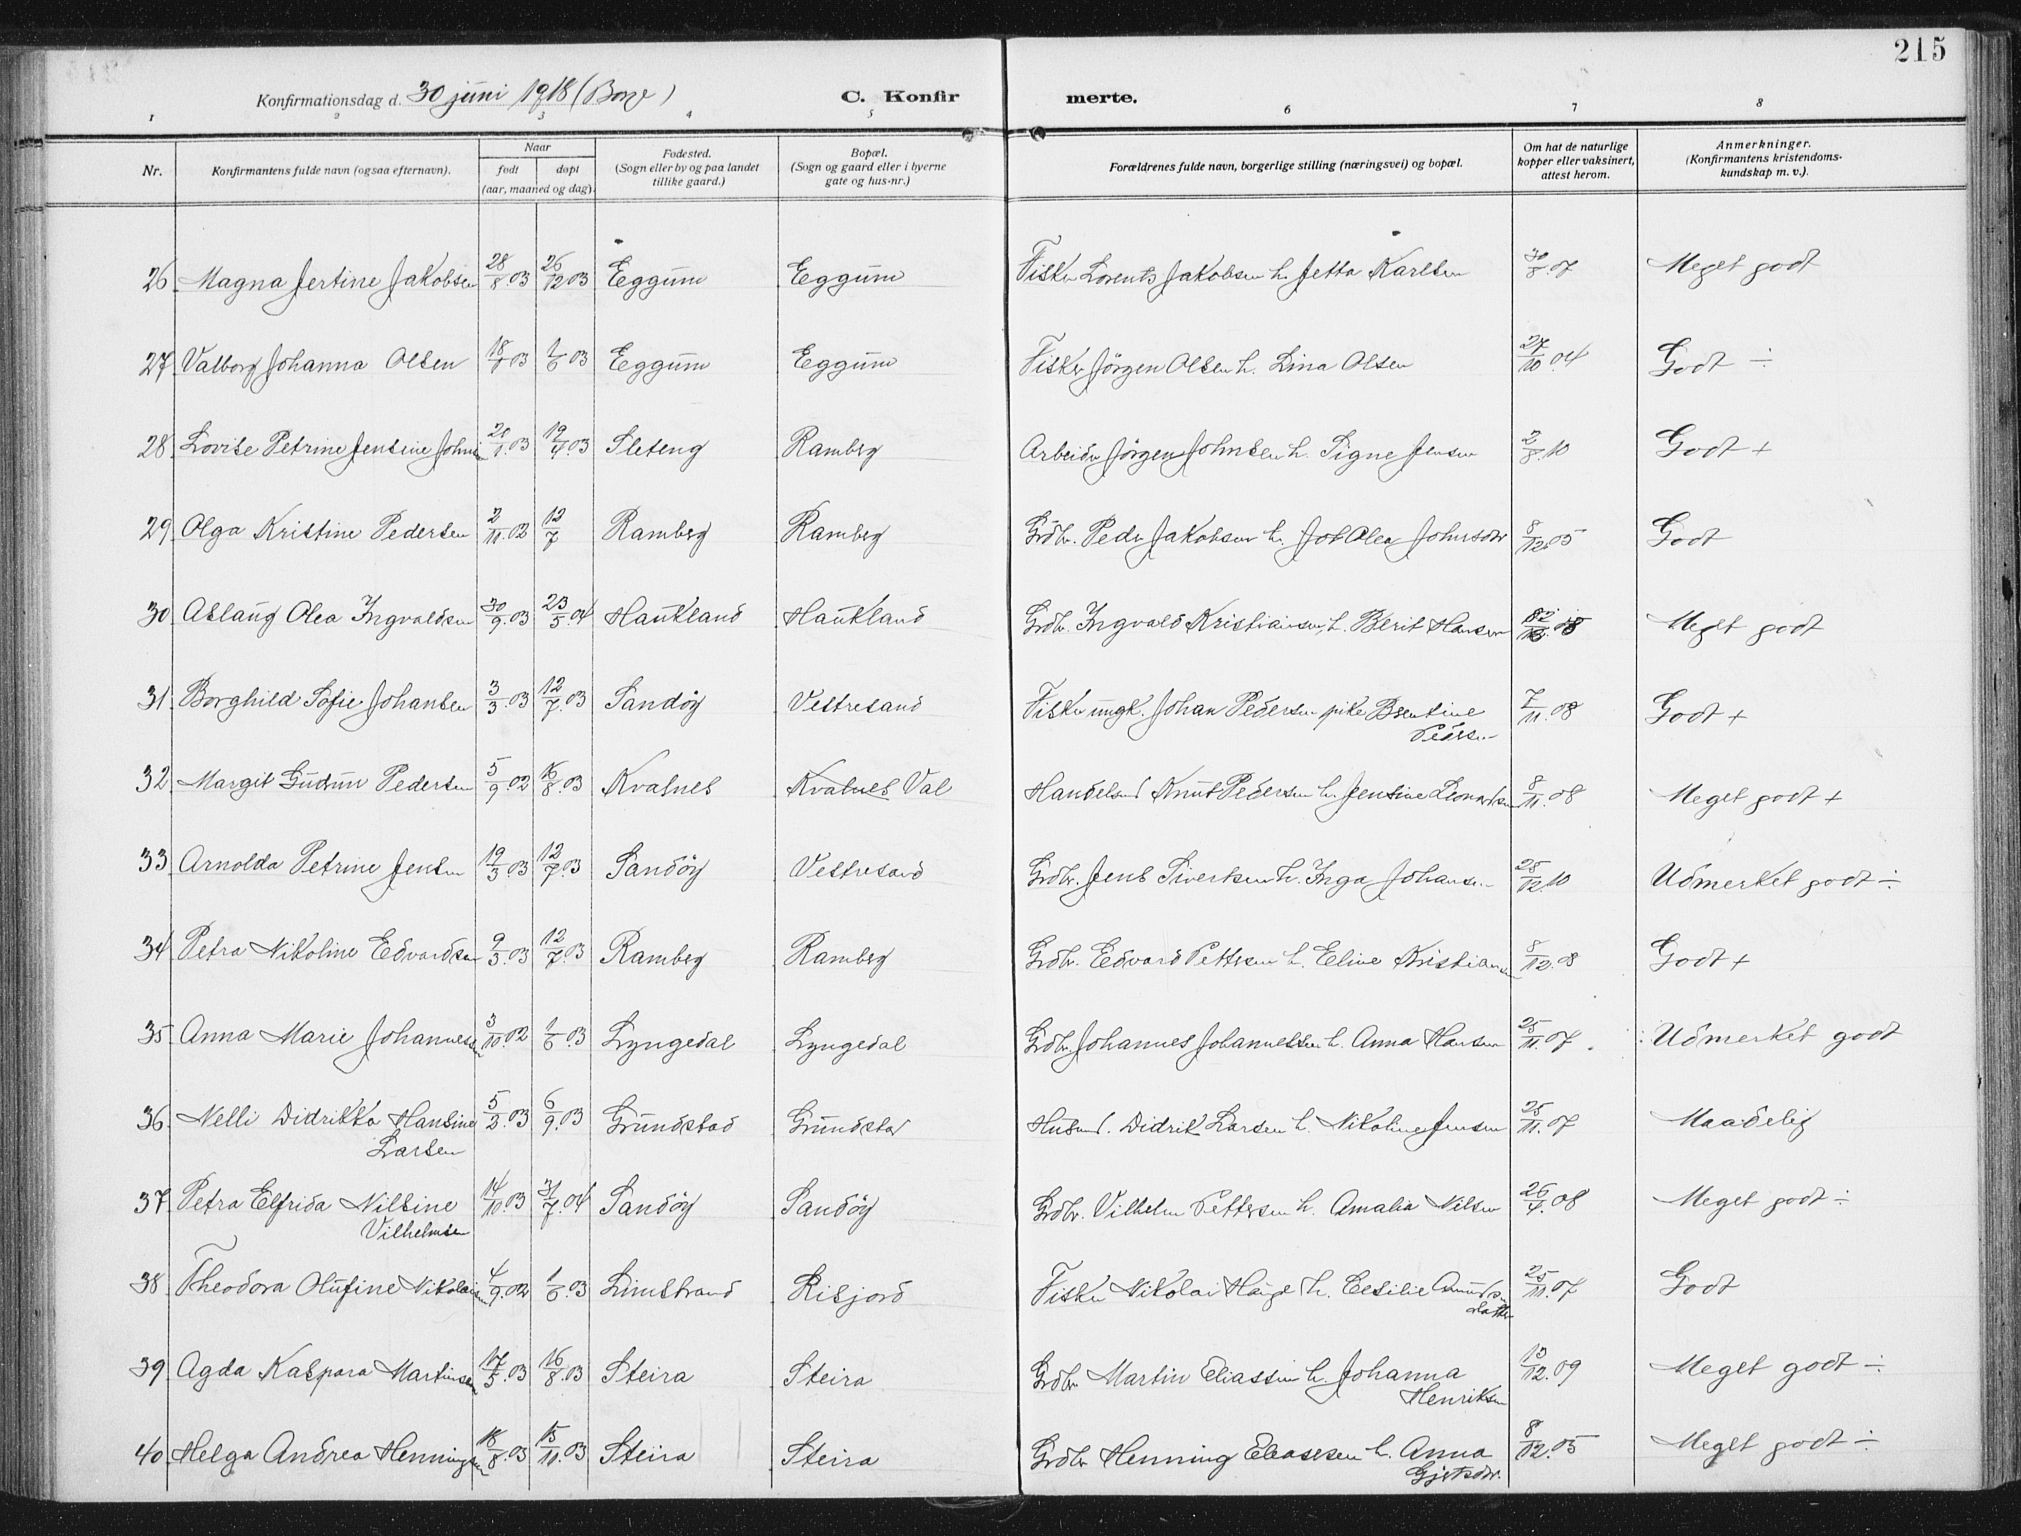 215
Konfirmationsdag d. 30 juni 1918 (Borge)
C. Konfirmerte.
1 2 3 4 5 6 7 8
Nr.
Konfirmantens fulde navn (ogsaa efternavn).
Naar
født døpt
(aar, maaned og dag).
Fødested.
(Sogn eller by og paa landet
tillike gaard.)
Bopæl.
(Sogn og gaard eller i byerne
gate og hus-nr.)
Forældrenes fulde navn, borgerlige stilling (næringsvei) og bopæl.
Om hat de naturlige
kopper eller vaksinert,
attest herom.
Anmerkninger.
(Konfirmantens kristendoms-
kundskap m. v.).
26 Magna Jertine Jakobsen 28/8 03 26/12 03 Eggum Eggum Fisker Lorents Jakobsen h. Jetta Karlsen 30/8 07 Meget godt
27 Valborg Johanna Olsen 18/1 03 1/6 03 Eggum Eggum Fisker Jörgen Olsen h. Lina Olsen 27/10 04 Godt ÷
28 Lovise Petrine Jensine Johnsen 21/1 03 19/4 03 Sleteng Ramberg Arbeider Jörgen Johnsen h. Signe Jensen 2/8 10 Godt +
29 Olga Kristine Pedersen 2/11 02 12/7 Ramberg Ramberg Grdbr. Peder Jakobsen h. Joh Olea Johnsdtr 8/12 05 Godt
30 Aslaug Olea Ingvaldsen 30/9 03 23/5 04 Haukland Haukland Grdbr. Ingvald Kristiansen h. Berit Hansen Meget godt
31 Borghild Sofie Johansen 3/3 03 12/7 03 Sandöy Vestresand Fisker ungk. Johan Pedersen pike Bsentine
Peders.
7/11 08 Godt +
32 Margit Gudrun Pedersen 5/9 02 16/8 03 Kvalnes Kvalnes Val Handelsm Knut Pedersen h. Jensine Leonardsen 8/11 08 Meget godt +
33 Arnolda Petrine Jensen 19/3 03 12/7 03 Sandöy Vestresand Grdbr. Jens Sivertsen h. Inga Johansen 28/12 10 Udmerket godt ÷
34 Petra Nikoline Edvardsen 9/3 03 12/7 03 Ramberg Ramberg Grdbr. Edvard Pettersen h. Eline Kristiansen 8/12 08 Godt +
35 Anna Marie Johannesen 3/10 02 1/6 03 Lyngedal Lyngedal Grdbr Johannes Johannessen h. Anna Hansen 25/11 07 Udmerket godt
36 Nelli Didrikka Hansine
Larsen
5/2 03 6/9 03 Grundstad Grundstad Husmd. Didrik Larsen h. Nikoline Jensen 25/11 07 Maadelig
37 Petra Elfrida Nilsine
Vilhelmsen
14/10 03 31/7 04 Sandöy Sandöy Grdbr. Vilhelm Pettersen h. Amalia Nilsen 26/4 08 Meget godt ÷
38 Theodora Olufine Nikolaisen 4/9 02 1/6 03 Limstrand Risjord Fisker Nikolai Hauge h. Cesilie Amunds
datter
25/11 07 Godt
39 Agda Kaspara Martinsen 17/5 03 16/8 03 Steira Steira Grdbr Martin Eliassen h. Johanna
Henriksen
13/12 09 Meget godt ÷
40 Helga Andrea Henningsen 18/8 03 15/11 03 Steira Steira Grdbr Henning Eliassen h. Anna
Gjertsdtr.
8/12 05 Meget godt ÷